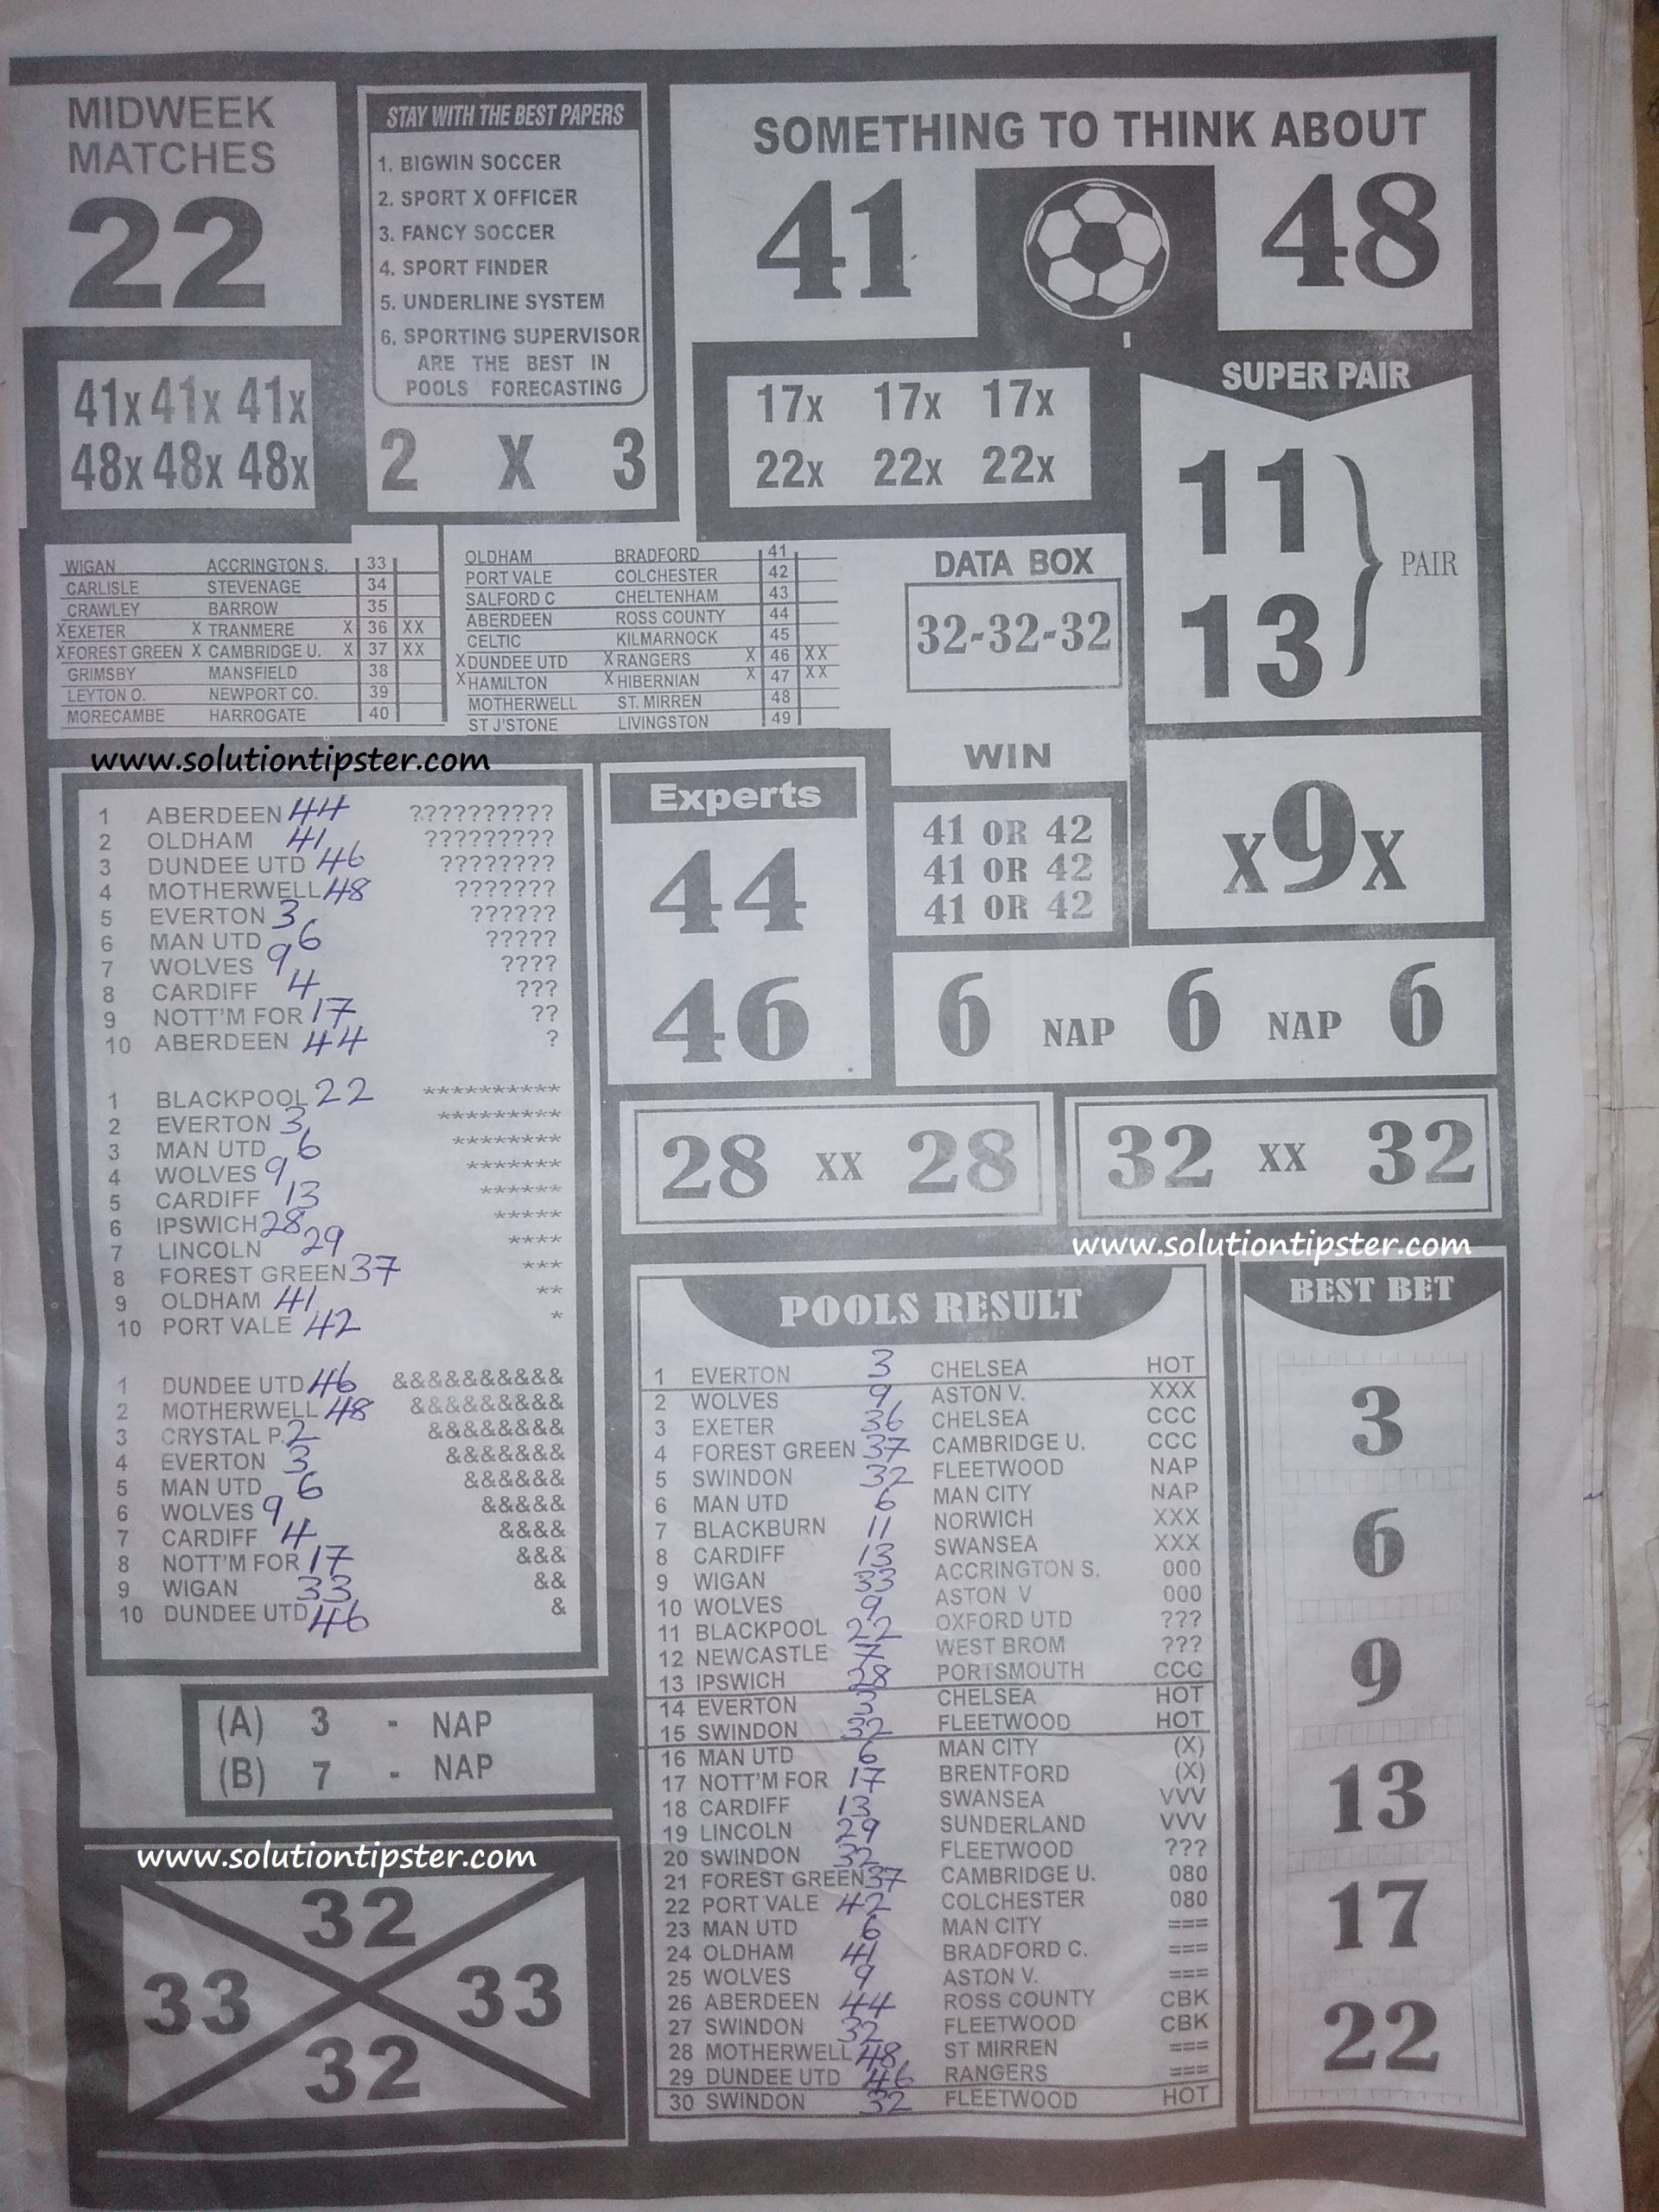 MIDWEEK
MATCHES
22
STAY WITH THE BEST PAPERS
1. BIGWIN SOCCER
2. SPORT X OFFICER
3. FANCY SOCCER
4. SPORT FINDER
5. UNDERLINE SYSTEM
6. SPORTING SUPERVISOR
ARE THE BEST IN
POOLS FORECASTING
2 X 3
SOMETHING TO THINK ABOUT
41 48
41x 41x 41x
48x 48x 48x
17x 17x 17x
22x 22x 22x
SUPER PAIR
11
13
PAIR
WIGAN ACCRINGTON S. 33
CARLISLE STEVENAGE 34
CRAWLEY BARROW 35
X EXETER X TRANMERE X 36 XX
X FOREST GREEN X CAMBRIDGE U. X 37 XX
GRIMSBY MANSFIELD 38
LEYTON O. NEWPORT CO. 39
MORECAMBE HARROGATE 40
OLDHAM BRADFORD 41
PORT VALE COLCHESTER 42
SALFORD C CHELTENHAM 43
ABERDEEN ROSS COUNTY 44
CELTIC KILMARNOCK 45
X DUNDEE UTD X RANGERS X 46 XX
X HAMILTON X HIBERNIAN X 47 XX
MOTHERWELL ST. MIRREN 48
ST J'STONE LIVINGSTON 49
DATA BOX
32-32-32
WIN
41 OR 42
41 OR 42
41 OR 42
X9X
www.solutiontipster.com
1 ABERDEEN 44 ??????????
2 OLDHAM 41 ?????????
3 DUNDEE UTD 46 ????????
4 MOTHERWELL 48 ???????
5 EVERTON 3 ??????
6 MAN UTD 6 ?????
7 WOLVES 9 ????
8 CARDIFF 4 ???
9 NOTT'M FOR 17 ??
10 ABERDEEN 44 ?
1 BLACKPOOL 22 **********
2 EVERTON 3 *********
3 MAN UTD 6 ********
4 WOLVES 9 *******
5 CARDIFF 13 ******
6 IPSWICH 28 *****
7 LINCOLN 29 ****
8 FOREST GREEN 37 ***
9 OLDHAM 41 **
10 PORT VALE 42 *
1 DUNDEE UTD 46 &&&&&&&&&&
2 MOTHERWELL 48 &&&&&&&&&
3 CRYSTAL P. 2 &&&&&&&&
4 EVERTON 3 &&&&&&&
5 MAN UTD 6 &&&&&&
6 WOLVES 9 &&&&&
7 CARDIFF 4 &&&&
8 NOTT'M FOR 17 &&&
9 WIGAN 33 &&
10 DUNDEE UTD 46 &
Experts
44
46
6 NAP 6 NAP 6
28 XX 28
32 XX 32
www.solutiontipster.com
(A) 3 - NAP
(B) 7 - NAP
www.solutiontipster.com
32
33 33
32
POOLS RESULT
1 EVERTON 3 CHELSEA HOT
2 WOLVES 9 ASTON V. XXX
3 EXETER 36 CHELSEA CCC
4 FOREST GREEN 37 CAMBRIDGE U. CCC
5 SWINDON 32 FLEETWOOD NAP
6 MAN UTD 6 MAN CITY NAP
7 BLACKBURN 11 NORWICH XXX
8 CARDIFF 13 SWANSEA XXX
9 WIGAN 33 ACCRINGTON S. 000
10 WOLVES 9 ASTON V 000
11 BLACKPOOL 22 OXFORD UTD ???
12 NEWCASTLE 7 WEST BROM ???
13 IPSWICH 28 PORTSMOUTH CCC
14 EVERTON 3 CHELSEA HOT
15 SWINDON 32 FLEETWOOD HOT
16 MAN UTD 6 MAN CITY (X)
17 NOTT'M FOR 17 BRENTFORD (X)
18 CARDIFF 13 SWANSEA VVV
19 LINCOLN 29 SUNDERLAND VVV
20 SWINDON 32 FLEETWOOD ???
21 FOREST GREEN 37 CAMBRIDGE U. 080
22 PORT VALE 42 COLCHESTER 080
23 MAN UTD 6 MAN CITY ===
24 OLDHAM 41 BRADFORD C. ===
25 WOLVES 9 ASTON V. ===
26 ABERDEEN 44 ROSS COUNTY CBK
27 SWINDON 32 FLEETWOOD CBK
28 MOTHERWELL 48 ST MIRREN ===
29 DUNDEE UTD 46 RANGERS ===
30 SWINDON 32 FLEETWOOD HOT
BEST BET
3
6
9
13
17
22